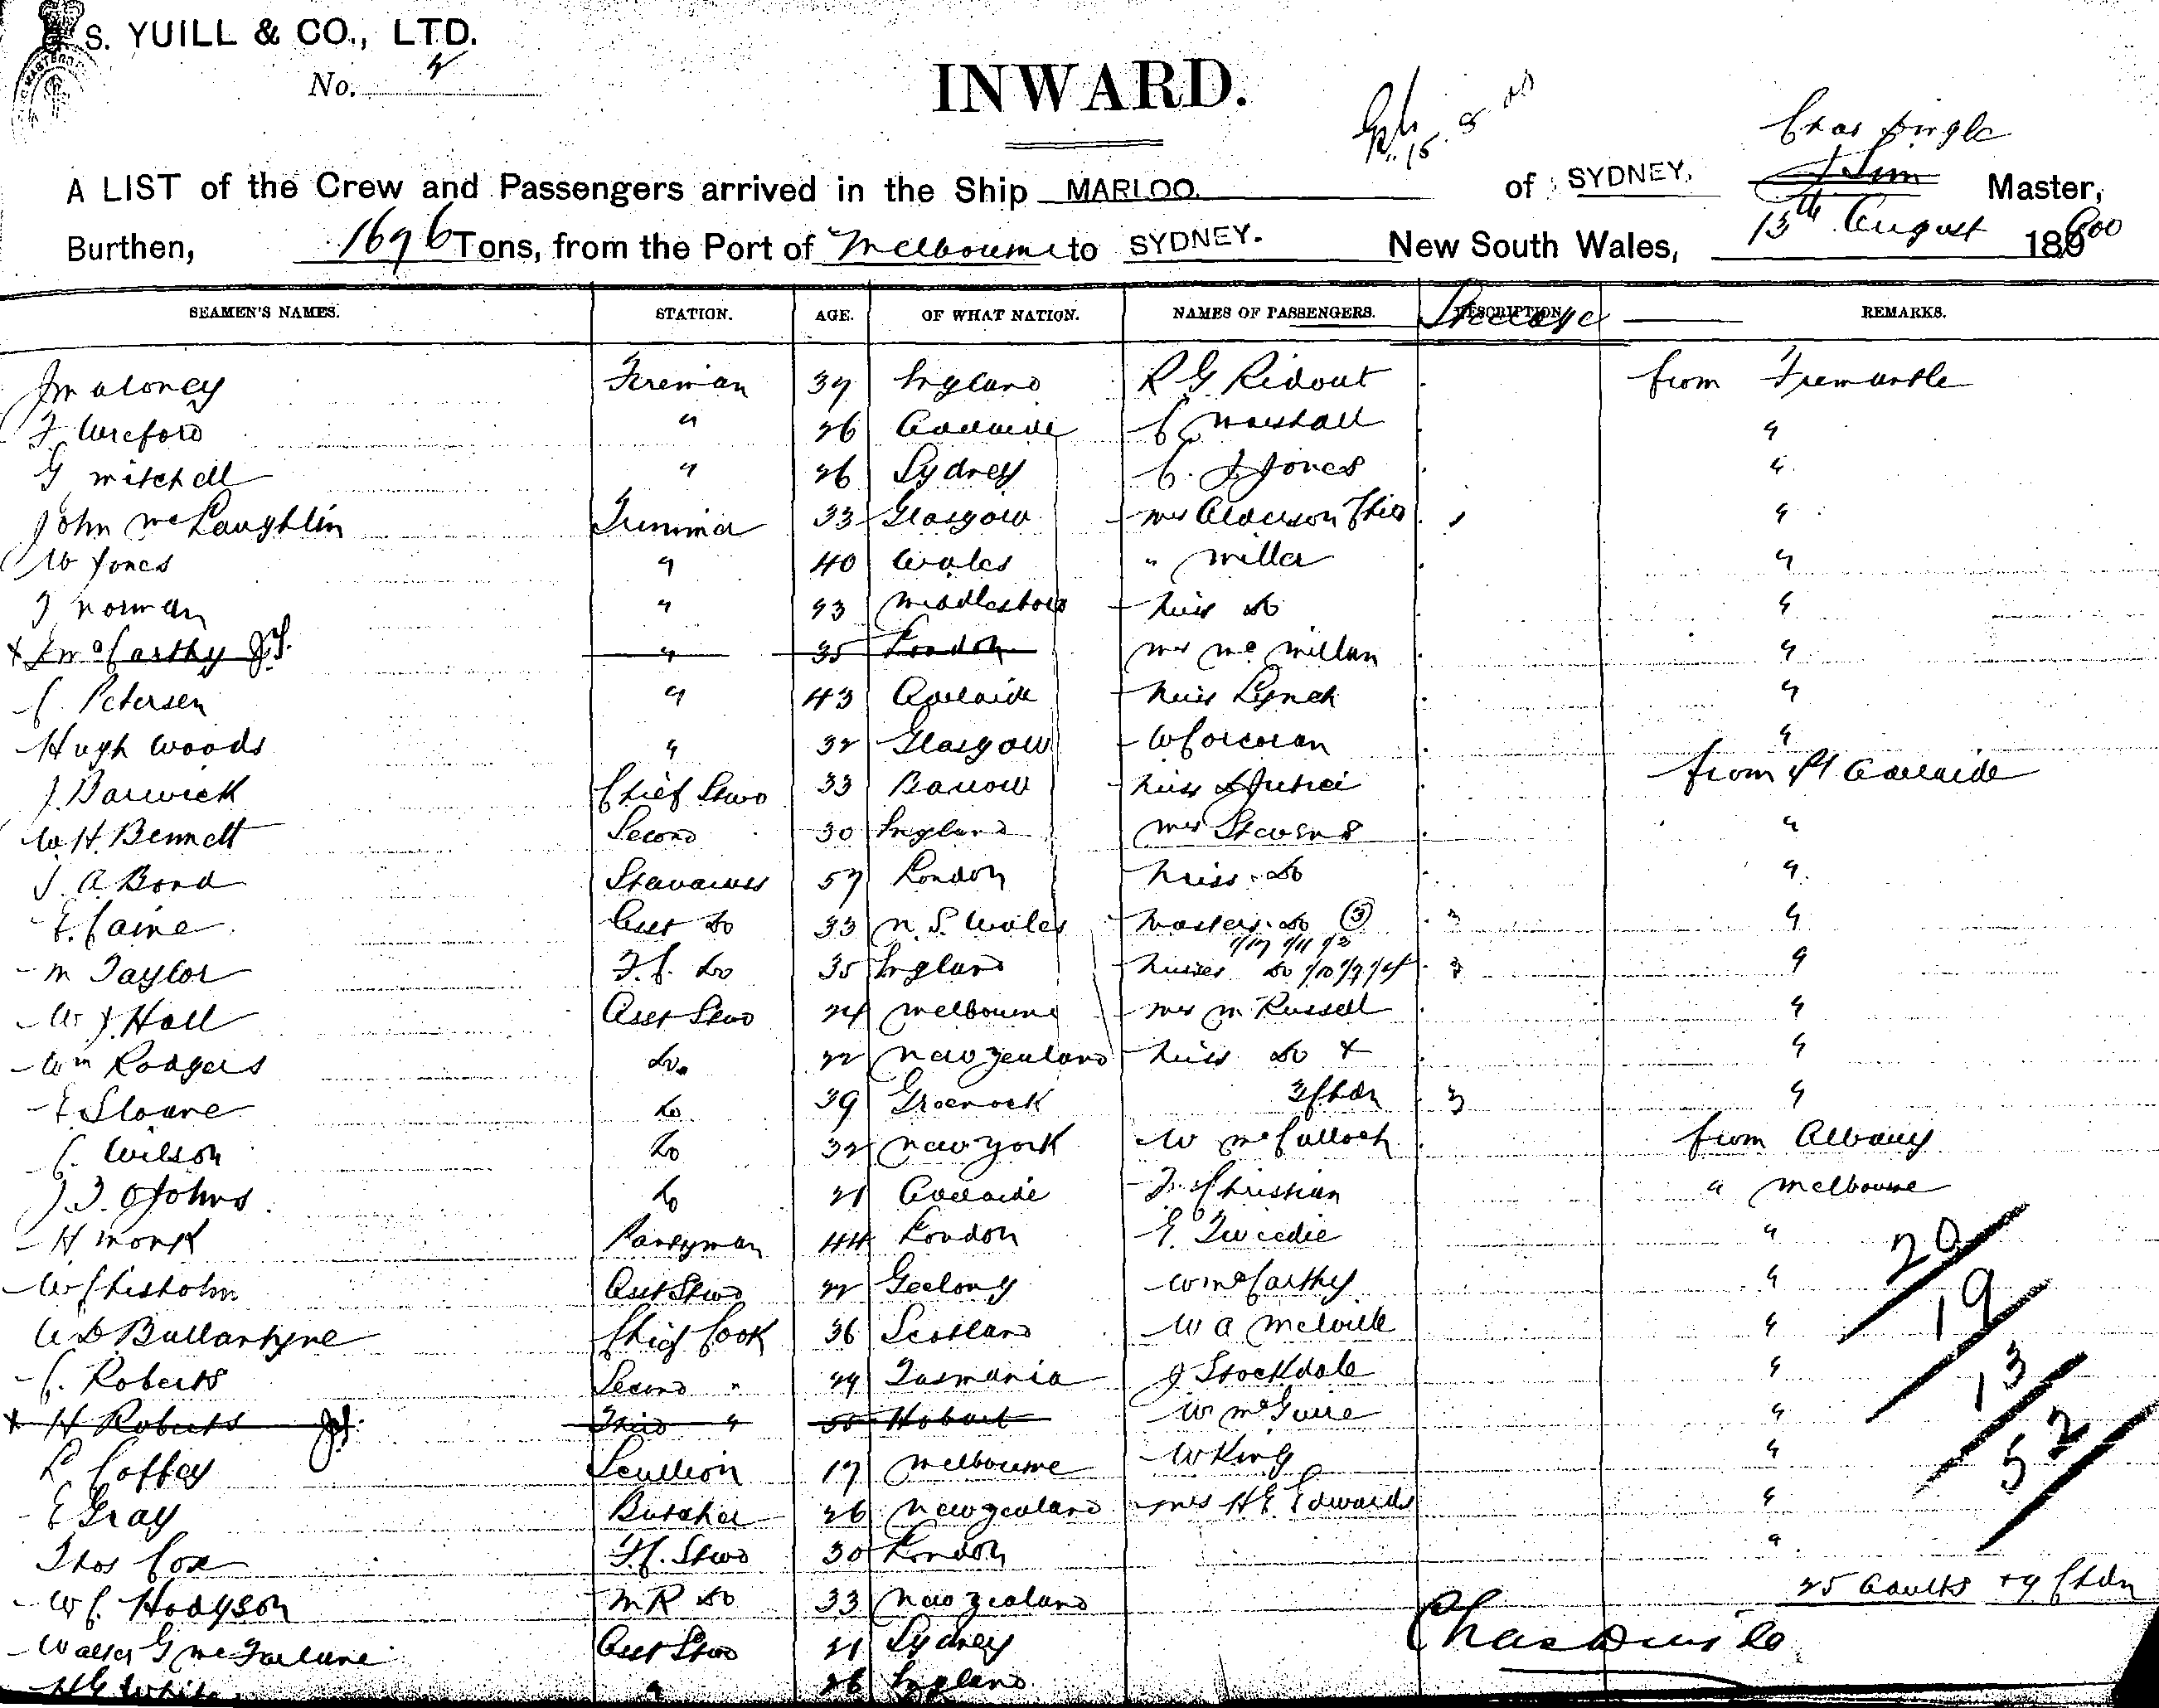 S. YUILL & CO., LTD.
No. 4
INWARD.
15. 8 00
Chas Dingle
A LIST of the Crew and Passengers arrived in the Ship MARLOO. of SYDNEY, J Sim Master,
Burthen, 1696 Tons, from the Port of Melbourne to SYDNEY. New South Wales, 13th August 1900
SEAMEN'S NAMES. STATION. AGE. OF WHAT NATION. NAMES OF PASSENGERS. DESCRIPTION Steerage REMARKS.
J Maloney Fireman 37 England R G Ridout from Fremantle
F Wreford " 26 Adelaide C Marshall "
G Mitchell " 26 Sydney C. J Jones "
John McLaughlin Trimmer 33 Glasgow Mrs Alderson "
W Jones " 40 Wales " Miller "
J Norman " 23 Middlesboro Miss Do "
x J McCarthy " 35 London Mrs McMillan "
C. Petersen " 43 Adelaide Miss Lynch "
Hugh Woods " 32 Glasgow W Corcoran "
J. Barwick Chief Stwd 33 Barrow Miss from Pt Adelaide
W. H. Bennett Second 30 England Mrs Stevens "
J. A Bond Stewardess 57 London Miss Do "
E. Caine Asst Do 33 N. S. Wales Masters Do (3) 3 "
M Taylor F. C. Do 35 England Misses Do 1/10 1/7 1/4 3 "
W J Hall Asst Stwd 24 Melbourne Mrs M Russell "
Wm Rodgers Do. 22 New Zealand Miss Do + "
E Sloane Do 39 Greenock 3 Chdn 3 "
C. Wilson Do 32 New York W McCulloch from Albany
J. J. O Johns Do 21 Adelaide F Christian " Melbourne
H Monk Pantryman 44 London E. Tweedie "
W Chisholm Asst Stwd 22 Geelong W McCarthy "
A D Ballantyne Chief Cook 36 Scotland W A Melville "
C. Roberts Second " 29 Tasmania J Stockdale "
x H Roberts Third " 50 Hobart W McGuire "
L Coffey Scullion 17 Melbourne W King "
E Gray Butcher 26 New Zealand Mrs H E Edwards "
Thos Cox F. C. Stwd 30 London "
W C. Hodgson M R Do 33 New Zealand
Walter G McFarlane Asst Stwd 21 Sydney
H G White " 26 England
20
19
13
52
25 Adults + 9 Chdn
Chas Dingle